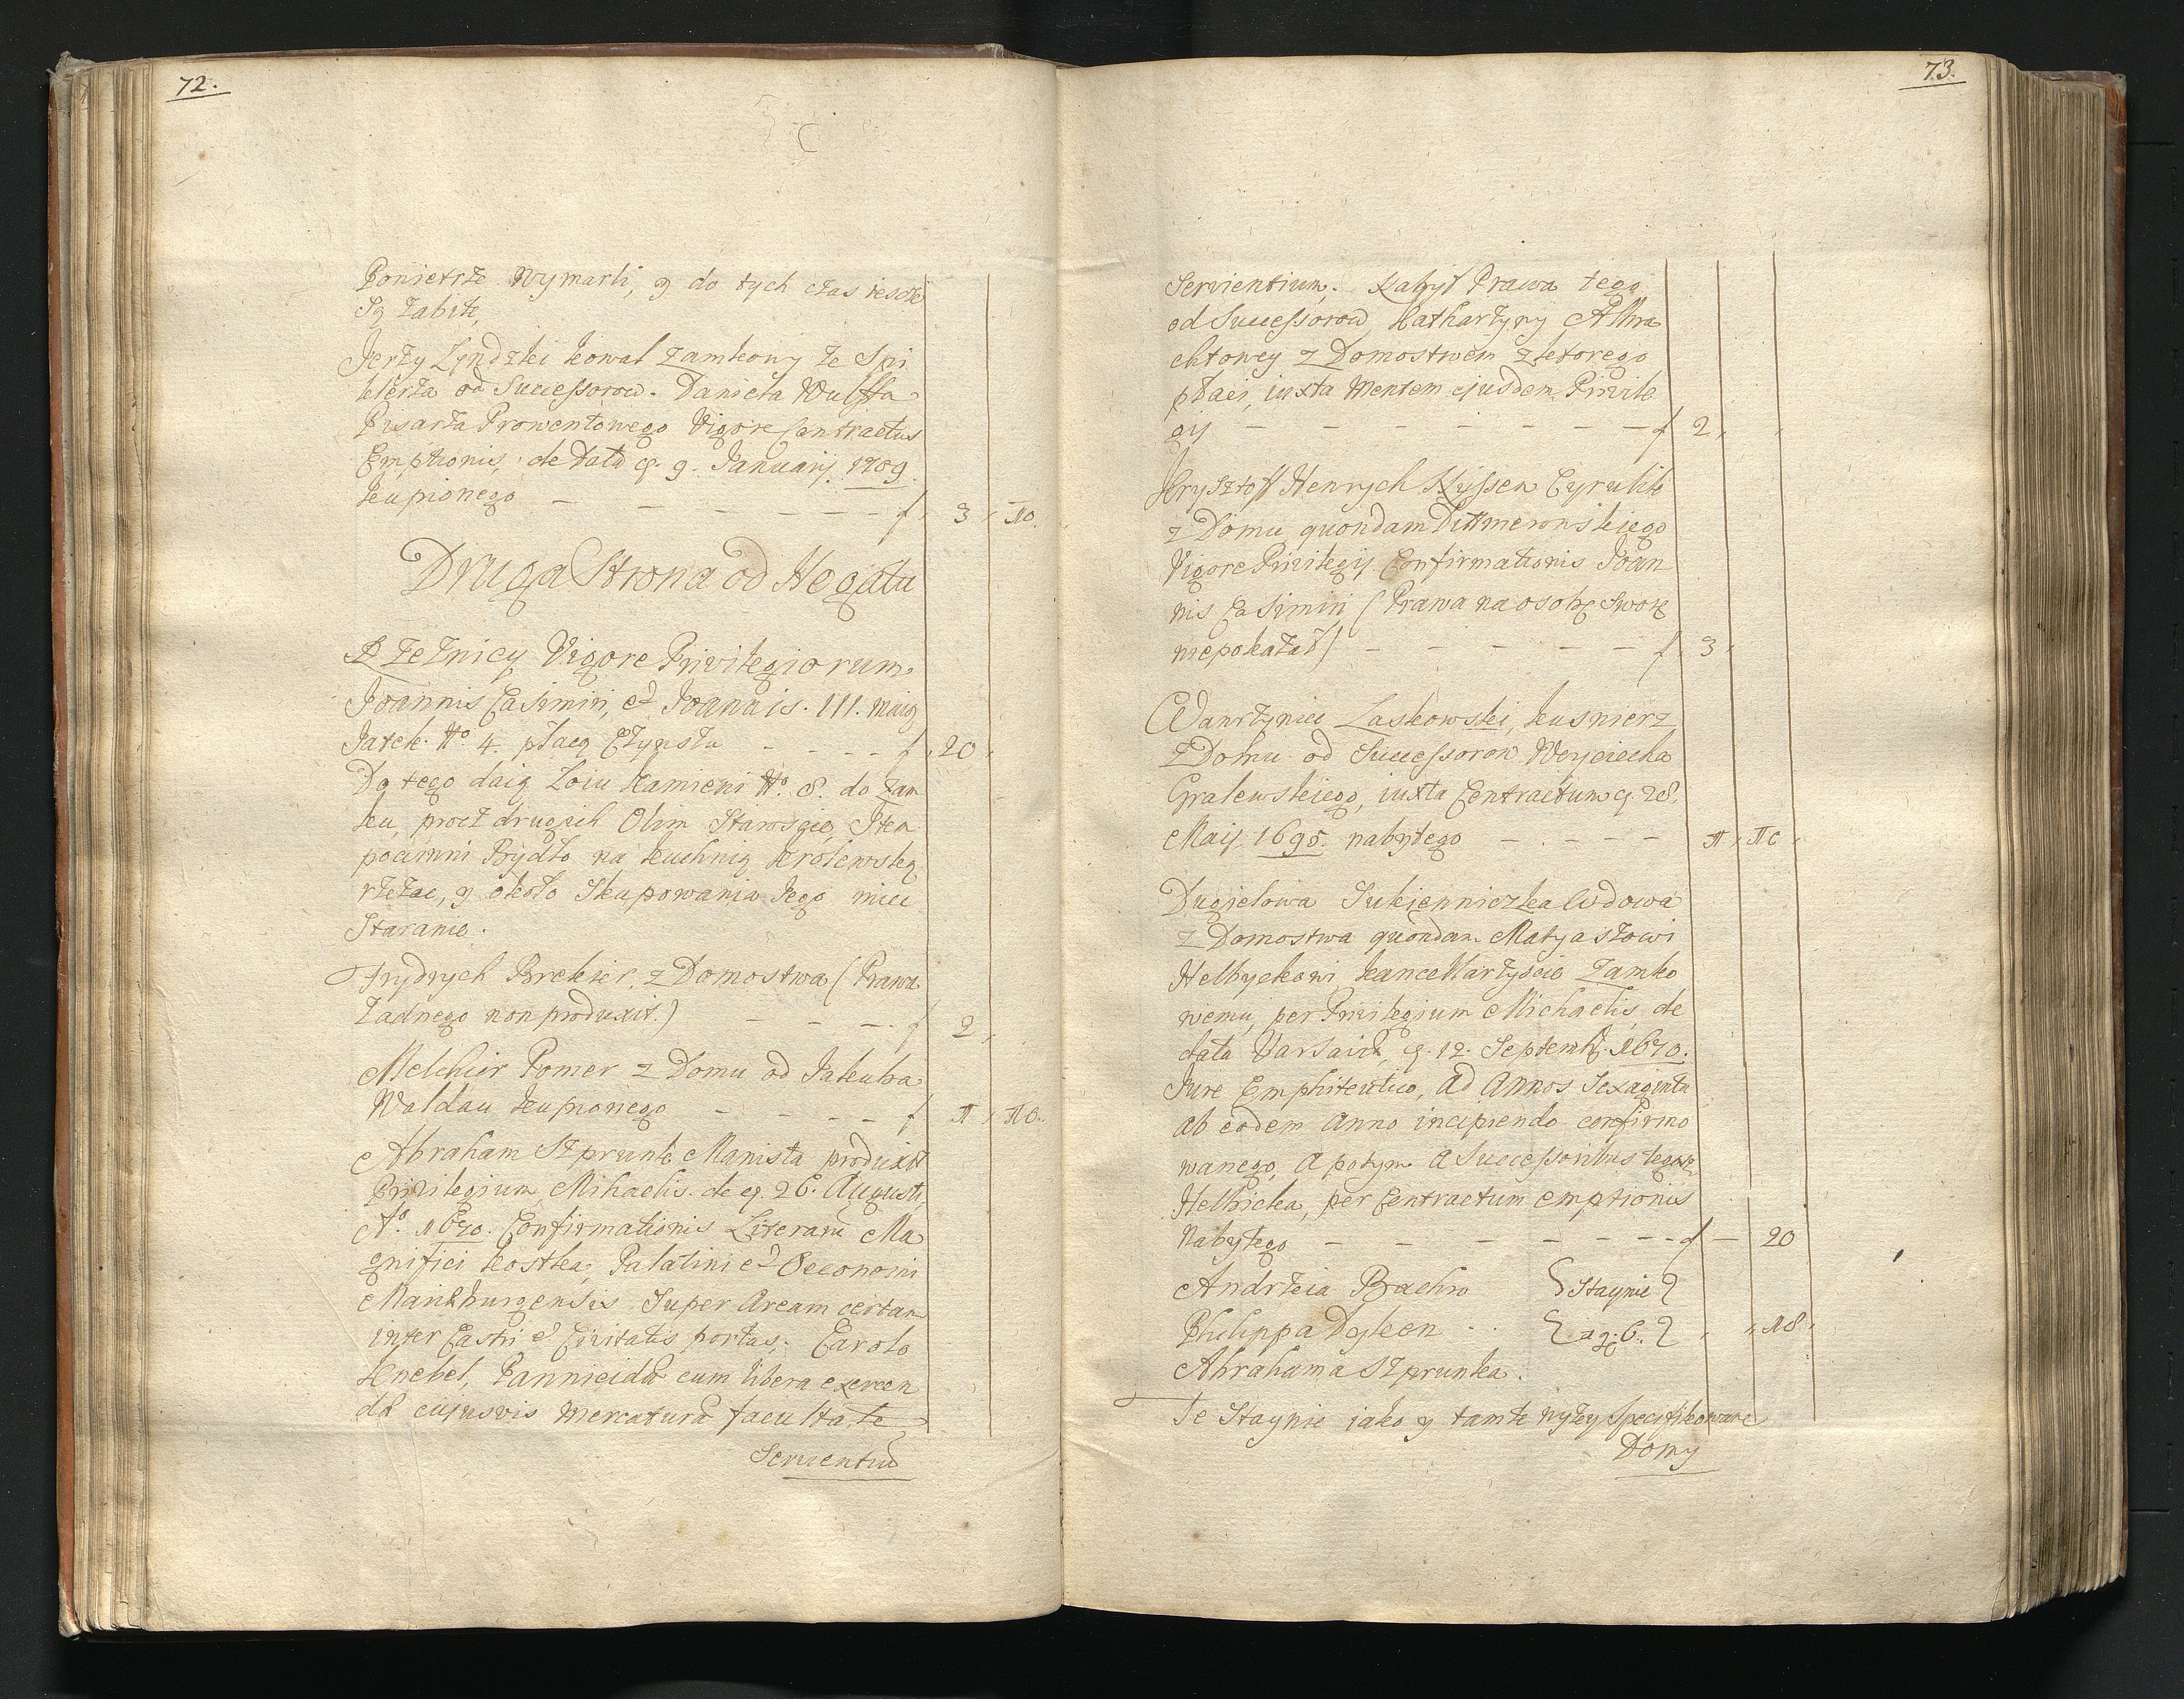 72.
Powietrze wymarli, y do tych czas ieszcze
Są zabite,
Jerzy Zyndzki kowal Zamkowy ze Spi
klerza od Successorow. Daniela Wulffa
Pisarza Prowentowego Vigore Contractus
Emptionis, de Data q. 9. Januarij 1709
kupionego — — — — — — f. 3. 10.
Druga Strona od Nogatu
Rzeźnicy Vigore Privilegiorum
Joannis Casimiri, et Joannis. III. maią
Jatek No. 4. płacą Czynszu - - - - f. 20.
Do tego daią Łoiu kamieni No. 8. do Zam
ku, procz drugich Olim Staroscie, Item
powinni Bydło na kuchnią krolewską
rzezac, y około Skupowania iego miec
Staranie.
Frydrych Brekier, z Domostwa (Prawa
Żadnego non produxit.) — — — f 2.
Melchior Pomer z Domu od Jakuba
Waldau kupionego — — — — f 1. 10.
Abraham Szprunk Manista produxit
Privilegium Mihaelis. de q. 26. Augusti,
Ao. 1670. Confirmationis Literarū Ma
gnifici kostka, Palatini et Oeconomi
Marieburgensis Super Aream certam
inter Castri et Civitatis portas, Carolo
Knebel, Pannicidæ cum libera exercen
dæ cujusvis mercaturæ facultate
Servientiū
73.
Servientium. Nabył Prawa tego
od Successorow, Katharzyny Albra
chtowey z Domostwem z ktorego
płaci, iuxta mentem ejusdem Privile
gij — — — — — — — f 2.
Krysztoff Henrych Nyssen Cyrulik
z Domu quondam Dittmerowskiego
Vigore Privilegij Confirmationis Joan
nis Casimiri, (Prawa na osobę Swoię
niepokazał) — — — — — f 3.
Wawrzyniec Laskowski, kusnierz
z Domu od Successorow Woyciecha
Gralewskiego, iuxta Contractum q. 28.
Maij 1695. nabytego — — — — 1. 10.
Dugielowa Sukienniczka Wdowa
z Domostwa quondam Matyaszowi
Helbyckowi, kancellarzyscie Zamko
wemu, per Privilegium Michaelis, de
data Varsaviæ, q. 12. Septembr. 1670.
Jure Emphiteutico, ad Annos Sexaginta
ab eodem Anno incipiendo confirmo
wanego, a potym a Successoribus tegoż
Helbicka, per Contractum emptionis
Nabytego — — — — — — — f — 20
Andrzeia Bachro { Staynie }
Philippa Dyleen . . { a g. 6. } . . 18.
Abrahama Szprunka.
Te Staynie iako y tamte wyżey Specifikowane
Domy